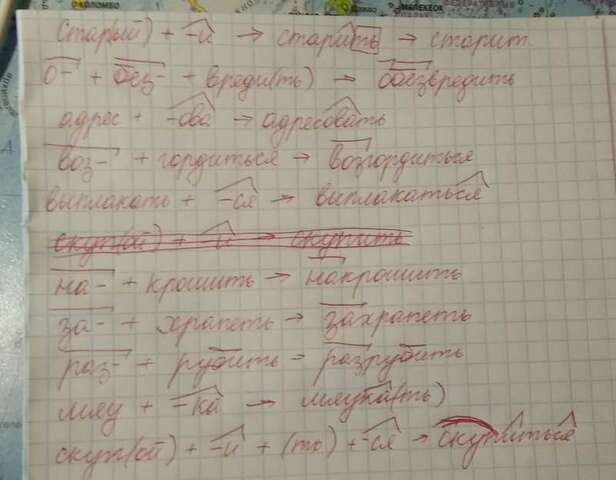 стар(ый) + -и → старить → старит
о- + без- + вреди(ть) → обезвредить
адрес + -ова → адресовать
воз- + гордиться → возгордиться
выплакать + -ся → выплакаться
скуп(ой) + -и → скупить
на- + крошить → накрошить
за- + храпеть → захрапеть
раз- + рубить - разрубить
мяу + -ка → мяука(ть)
скуп(ой) + -и + (ть) + -ся → скупиться
КОЛОМБО